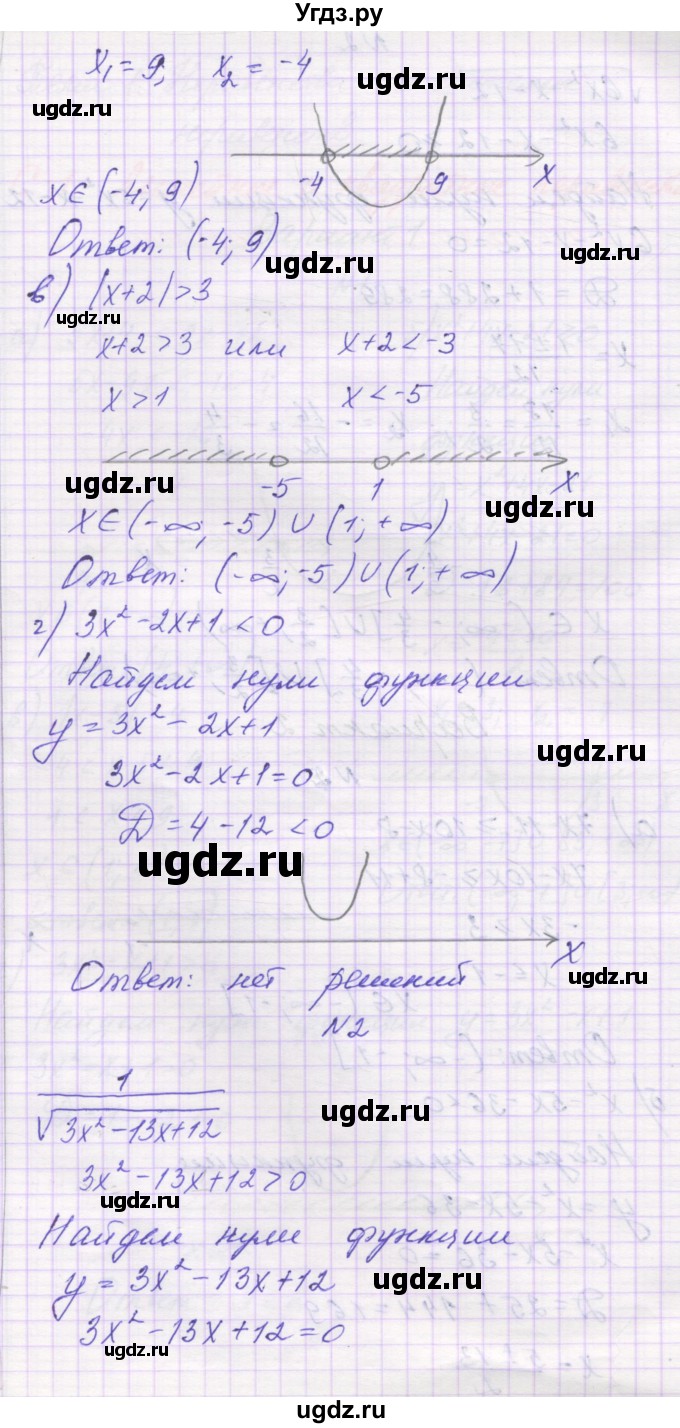 Угдз.ру
x₁ = 9; x₂ = -4
ugdz.ru
-4 9 x
x ∈ (-4; 9)
Ответ: (-4; 9)
ugdz.ru
ugdz.ru
в) |x+2| > 3
ugdz.ru
x+2 > 3 или x+2 < -3
x > 1 x < -5
ugdz.ru
-5 1 x
ugdz.ru
x ∈ (-∞; -5) ∪ (1; +∞)
Ответ: (-∞; -5) ∪ (1; +∞)
г) 3x² - 2x + 1 < 0
Найдем нули функции
y = 3x² - 2x + 1
ugdz.ru
3x² - 2x + 1 = 0
Д = 4 - 12 < 0
ugdz.ru
x
Ответ: нет решений
ugdz.ru
N2
1
√3x² - 13x + 12
ugdz.ru
3x² - 13x + 12 > 0
ugdz.ru
Найдем нули функции
y = 3x² - 13x + 12
ugdz.ru
3x² - 13x + 12 = 0
ugdz.ru
ugdz.ru